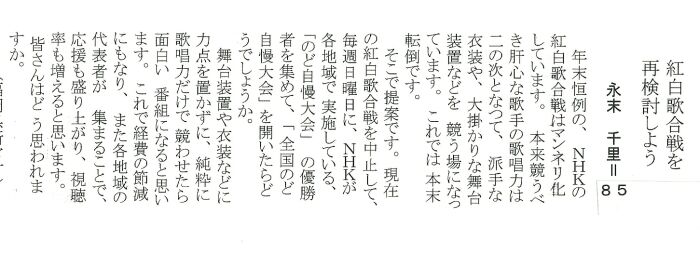 紅白歌合戦を
再検討しよう
永末　千里＝
８５
年末恒例の、ＮＨＫの
紅白歌合戦はマンネリ化
しています。　本来競うべ
き肝心な歌手の歌唱力は
二の次となつて、派手な
衣装や、大掛かりな舞台
装置などを　競う場になっ
ています。　これでは　本末
転倒です。
そこで提案です。　現在
の紅白歌合戦を中止して、
毎週日曜日に、ＮＨＫが
各地域で　実施している、
「のど自慢大会」　の優勝
者を集めて、　「全国のど
自慢大会」を開いたらど
うでしょうか。
舞台装置や衣装などに
力点を置かずに、純粋に
歌唱力だけで　競わせたら
面白い　番組になると思い
ます。　これで経費の節減
にもなり、　また各地域の
代表者が　集まることで、
応援も盛り上がり、　視聴
率も増えると思います。
皆さんはどう思われま
すか。